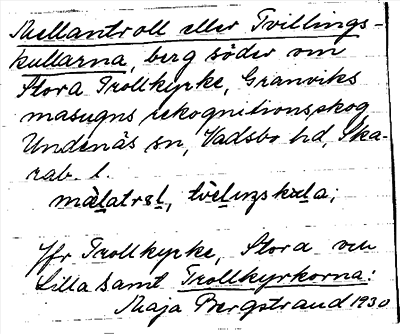 Mellantroll eller Tvillings-
kullarna, berg söder om
Stora Trollkyrke, Granviks
masugns rekognitionsskog
Undenäs sn, Vadsbo hd, Ska-
rab. l.
mälatrɔl, tvìlıŋskùla;
Jfr Trollkyrke, Stora och
Lilla samt Trollkyrkorna!
Maja Bergstrand 1930